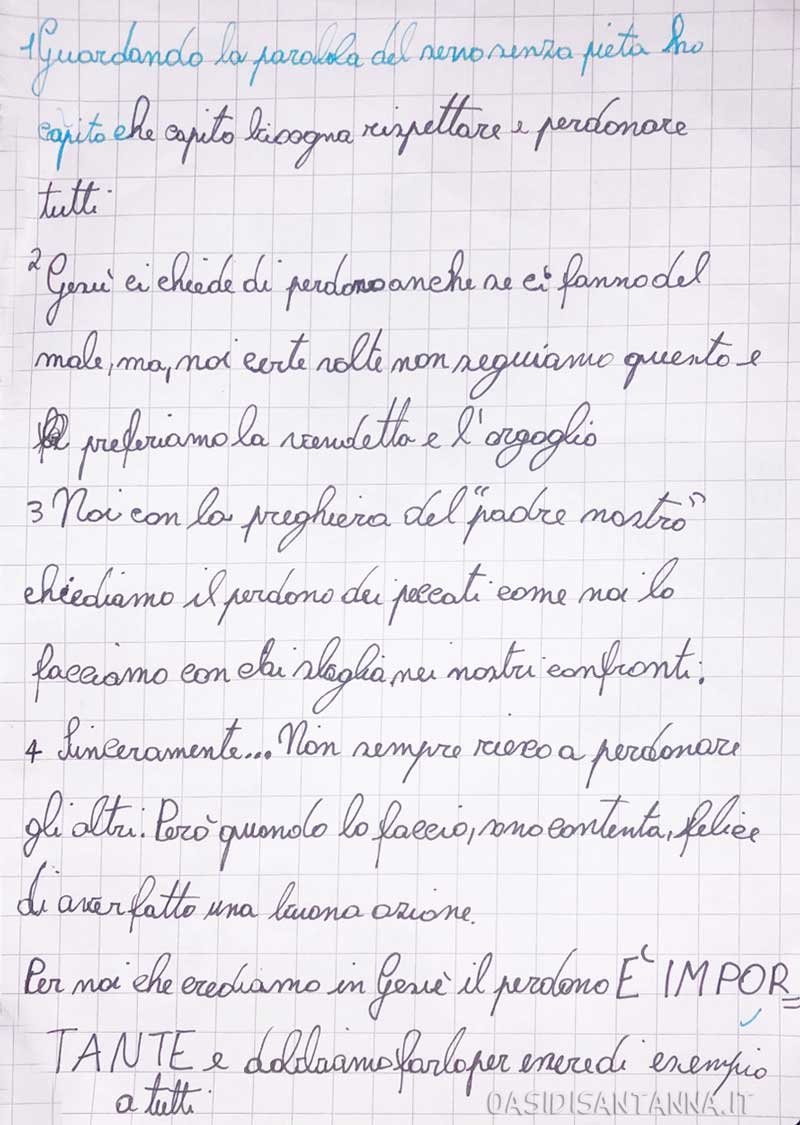 1 Guardando la parabola del servo senza pietà ho
capito che capito bisogna rispettare e perdonare
tutti.
2 Gesù ci chiede di perdono anche se ci fanno del
male, ma, noi certe volte non seguiamo questo e
preferiamo la vendetta e l'orgoglio
3 Noi con la preghiera del "padre nostro"
chiediamo il perdono dei peccati come noi lo
facciamo con chi sbaglia, nei nostri confronti.
4 Sinceramente... Non sempre riesco a perdonare
gli altri. Però quando lo faccio, sono contenta, felice
di aver fatto una buona azione.
Per noi che crediamo in Gesù il perdono E' IMPOR_
TANTE e dobbiamo farlo per essere di esempio
a tutti.
OASIDISANTANNA.IT